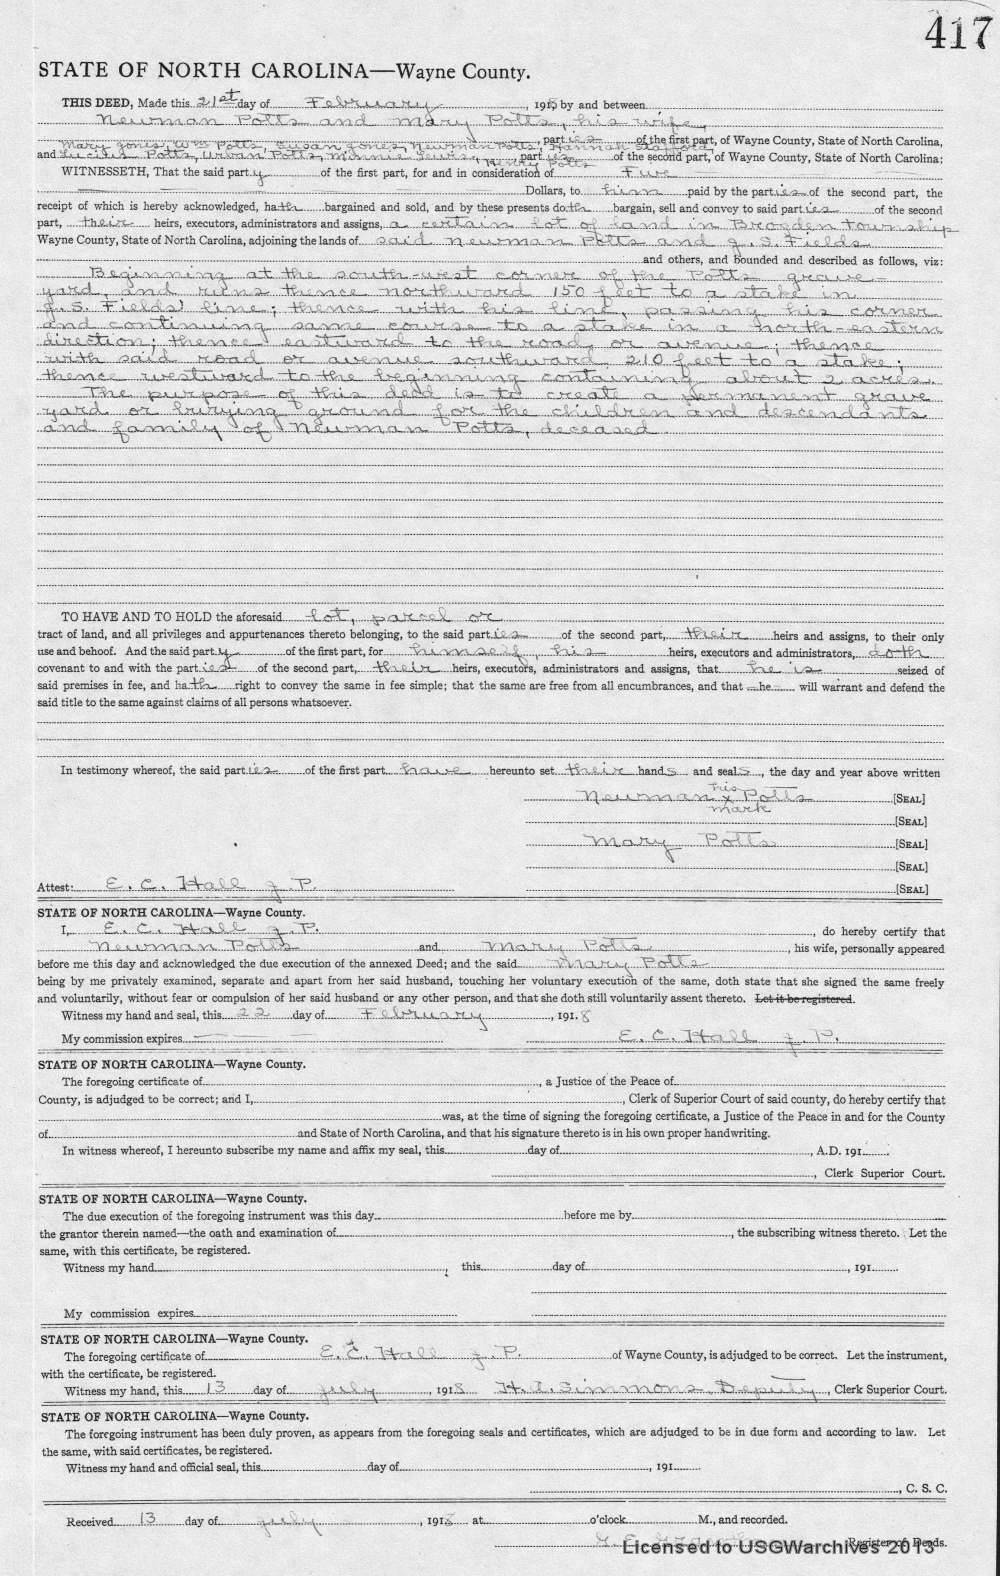 417
STATE OF NORTH CAROLINA—Wayne County.
THIS DEED, Made this 21st day of February, 191 by and between
Newman Potts and Mary Potts, his wife,
parties of the first part, of Wayne County, State of North Carolina,
Mary Jones, Wm Potts, Susan Jones, Newman Potts, Hannah
and Lucilus Potts, Urban Potts, Minnie Lewis, Henry Potts parties of the second part, of Wayne County, State of North Carolina;
WITNESSETH, That the said party of the first part, for and in consideration of Five
Dollars, to him paid by the parties of the second part, the
receipt of which is hereby acknowledged, hath bargained and sold, and by these presents doth bargain, sell and convey to said parties of the second
part, their heirs, executors, administrators and assigns, a certain lot of land in Brogden Township
Wayne County, State of North Carolina, adjoining the lands of said Newman Potts and J. S. Fields
and others, and bounded and described as follows, viz:
Beginning at the south-west corner of the Potts grave-
yard, and runs thence northward 150 feet to a stake in
J. S. Fields' line; thence with his line, passing his corner
and continuing same course to a stake in a north-eastern
direction; thence eastward to the road, or avenue; thence
with said road or avenue southward 210 feet to a stake;
thence westward to the beginning containing about 2 acres.
The purpose of this deed is to create a permanent grave
yard or burying ground for the children and descendants
and family of Newman Potts, deceased.
TO HAVE AND TO HOLD the aforesaid lot, parcel or
tract of land, and all privileges and appurtenances thereto belonging, to the said parties of the second part, their heirs and assigns, to their only
use and behoof. And the said party of the first part, for himself, his heirs, executors and administrators, doth
covenant to and with the parties of the second part, their heirs, executors, administrators and assigns, that he is seized of
said premises in fee, and hath right to convey the same in fee simple; that the same are free from all encumbrances, and that he will warrant and defend the
said title to the same against claims of all persons whatsoever.
In testimony whereof, the said parties of the first part have hereunto set their hands and seals, the day and year above written
his
Newman x Potts [SEAL]
mark
[SEAL]
Mary Potts [SEAL]
[SEAL]
Attest: E. C. Hall J. P. [SEAL]
STATE OF NORTH CAROLINA—Wayne County.
I, E. C. Hall J. P., do hereby certify that
Newman Potts and Mary Potts, his wife, personally appeared
before me this day and acknowledged the due execution of the annexed Deed; and the said Mary Potts
being by me privately examined, separate and apart from her said husband, touching her voluntary execution of the same, doth state that she signed the same freely
and voluntarily, without fear or compulsion of her said husband or any other person, and that she doth still voluntarily assent thereto. Let it be registered.
Witness my hand and seal, this 22 day of February, 1918
My commission expires E. C. Hall J. P.
STATE OF NORTH CAROLINA—Wayne County.
The foregoing certificate of, a Justice of the Peace of
County, is adjudged to be correct; and I, , Clerk of Superior Court of said county, do hereby certify that
was, at the time of signing the foregoing certificate, a Justice of the Peace in and for the County
of and State of North Carolina, and that his signature thereto is in his own proper handwriting.
In witness whereof, I hereunto subscribe my name and affix my seal, this day of, A.D. 191
, Clerk Superior Court.
STATE OF NORTH CAROLINA—Wayne County.
The due execution of the foregoing instrument was this day before me by
the grantor therein named—the oath and examination of, the subscribing witness thereto. Let the
same, with this certificate, be registered.
Witness my hand, this day of, 191
My commission expires
STATE OF NORTH CAROLINA—Wayne County.
The foregoing certificate of E. C. Hall J. P. of Wayne County, is adjudged to be correct. Let the instrument,
with the certificate, be registered.
Witness my hand, this 13 day of July, 1918 H. I. Simmons, Deputy, Clerk Superior Court.
STATE OF NORTH CAROLINA—Wayne County.
The foregoing instrument has been duly proven, as appears from the foregoing seals and certificates, which are adjudged to be in due form and according to law. Let
the same, with said certificates, be registered.
Witness my hand and official seal, this day of, 191
, C. S. C.
Received 13 day of July, 1918 at o'clock M., and recorded.
Register of Deeds.
Licensed to USGWarchives 2013